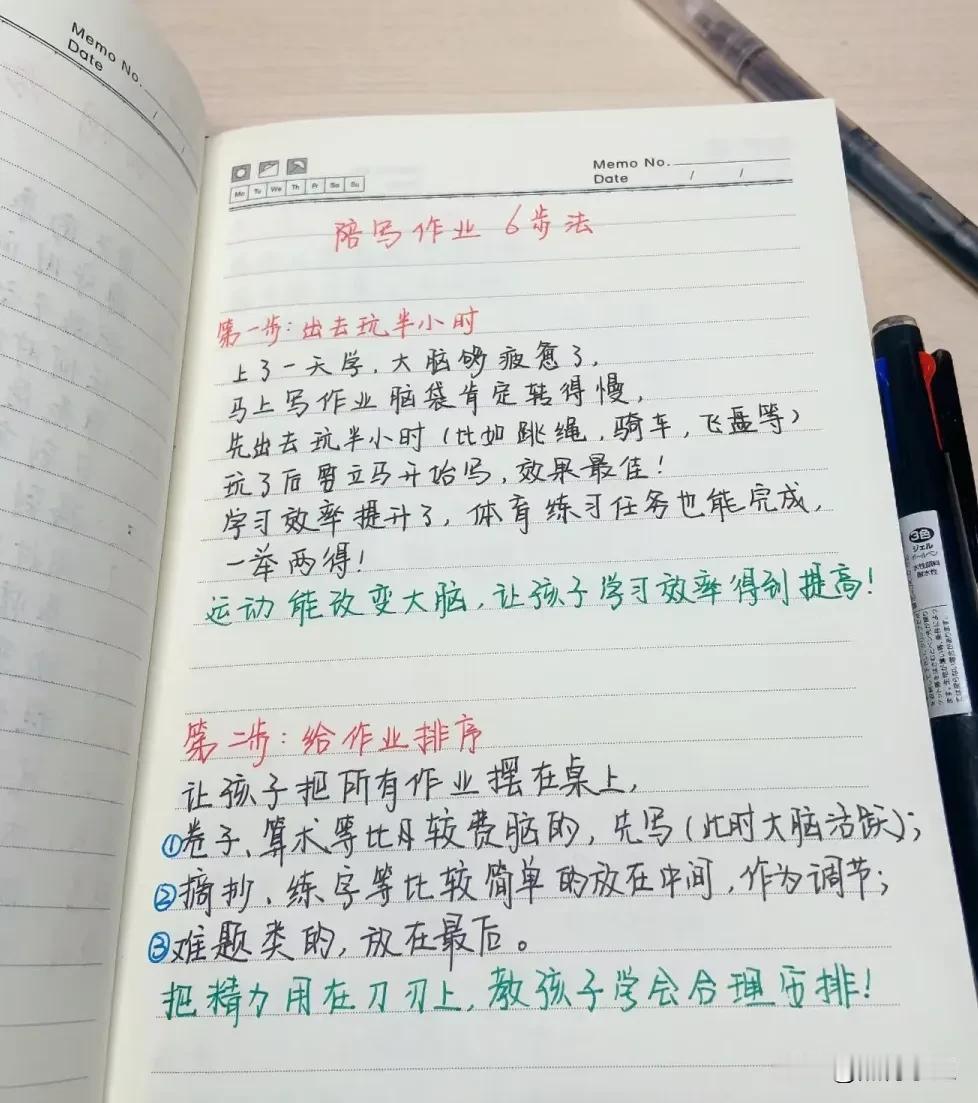 Memo No.
Date / /
Memo No.
Date / /
Mo Tu We Th Fr Sa Su
陪写作业 6步法
第一步：出去玩半小时
上了一天学，大脑够疲惫了，
马上写作业脑袋肯定转得慢，
先出去玩半小时（比如跳绳，骑车，飞盘等）
玩了后要立马开始写，效果最佳！
学习效率提升了，体育练习任务也能完成，
一举两得！
运动能改变大脑，让孩子学习效率得到提高！
第二步：给作业排序
让孩子把所有作业摆在桌上，
①卷子、算术等比较费脑的，先写（此时大脑活跃）；
②摘抄、练字等比较简单的放在中间，作为调节；
③难题类的，放在最后。
把精力用在刀刃上，教孩子学会合理安排！
3色
ジェル
ボールペン
水性顔料
耐水性